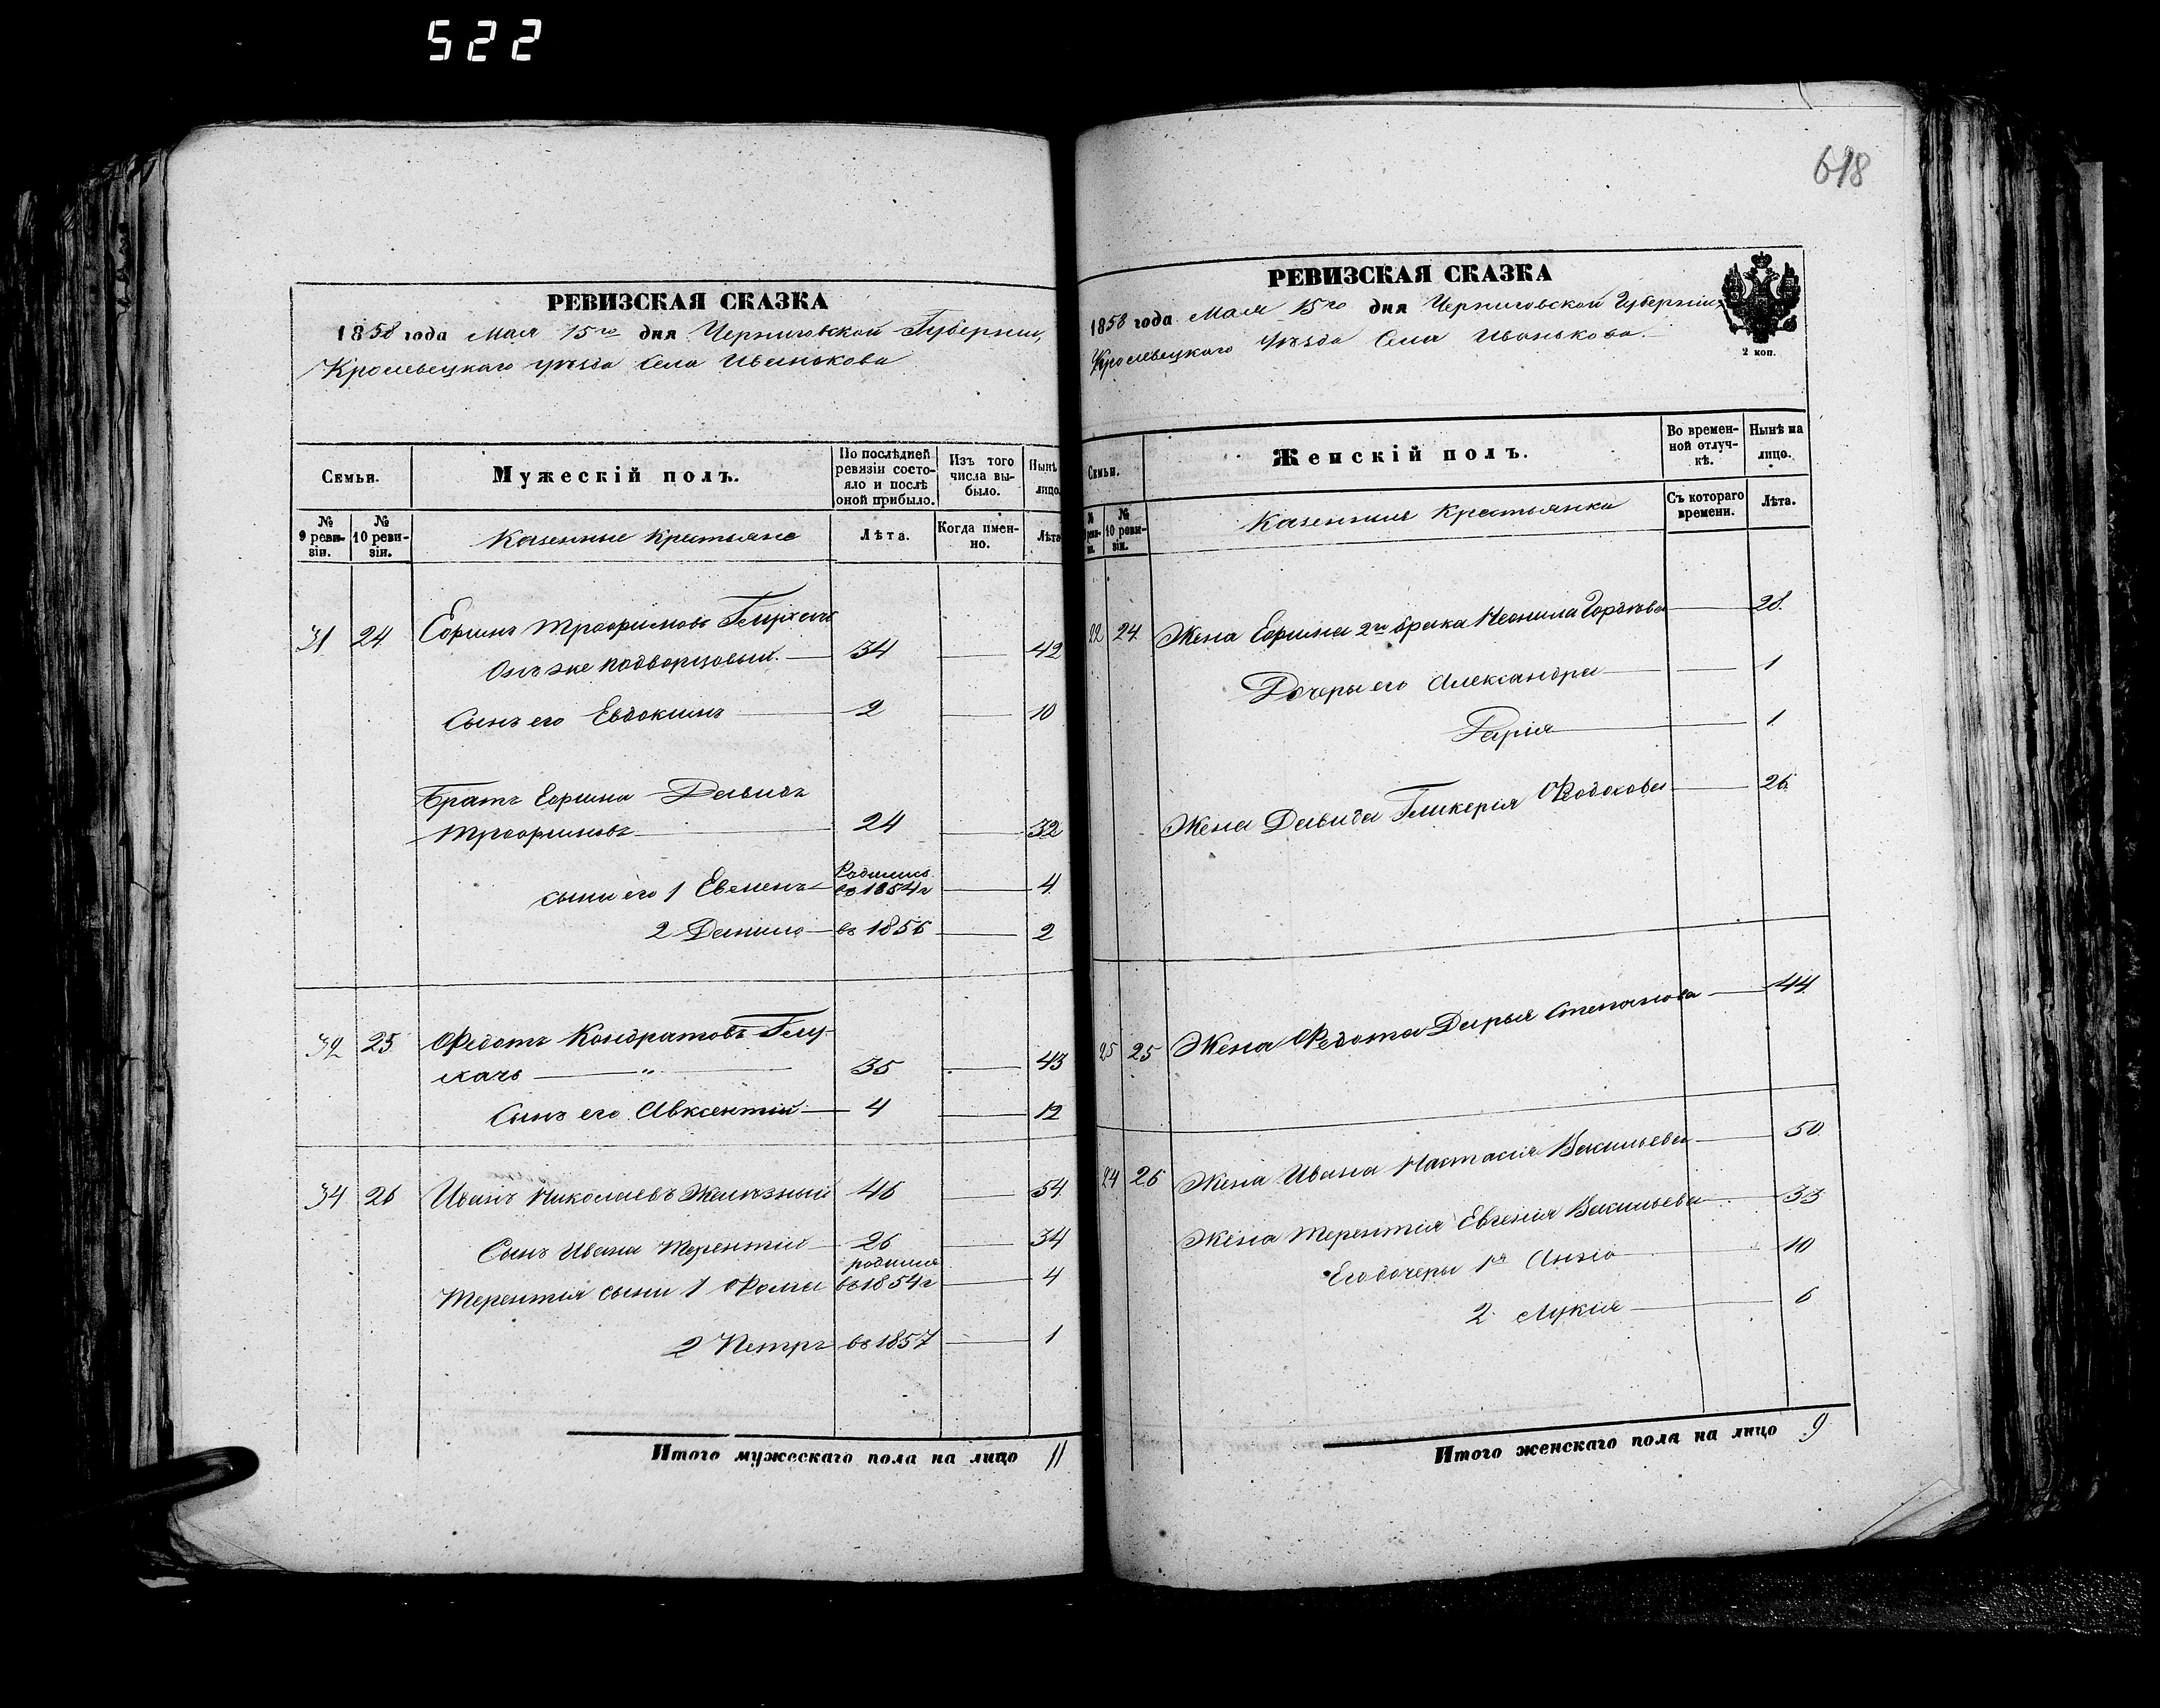 522
618
РЕВИЗСКАЯ СКАЗКА
1858 года Мая 15го дня Черниговской Губернии,
Кролевецкаго уѣзда Села Иванькова
Семьи.
Мужескій полъ.
По послѣдней ревизіи состояло и послѣ оной прибыло.
Изъ того числа выбыло.
Нынѣ лицо.
№ 9 ревизіи.
№ 10 ревизіи.
Казенные Крестьяне
Лѣта.
Когда именно.
Лѣта
31 24 Ефимъ Трофимовъ
Онъ же Подворцовый. 34 42
Сынъ его Евдокимъ 2 10
Братъ Ефима Давидъ
Трофимовъ 24 32
Родились
сыни его 1 Евменъ въ 1854г 4
2 Данило въ 1856 2
32 25 Федотъ Кондратовъ Глу-
хачъ 35 43
Сынъ его Авксентій 4 12
34 26 Иванъ Николаевъ Желѣзный 46 54
Сынъ Ивана Терентій 26 34
родились
Терентія сыни 1 Фома въ 1854г 4
2 Петръ въ 1857 1
Итого мужескаго пола на лицо 11
РЕВИЗСКАЯ СКАЗКА
1858 года Мая 15го дня Черниговской Губерніи
Кролевецкаго Уѣзда Села Иванькова.
2 коп.
Семьи.
Женскій полъ.
Во временной отлучкѣ.
Нынѣ на лицо.
№ 10 ревизіи.
Казенныя Крестьянки
Съ котораго времени.
Лѣта.
22 24 Жена Ефима 2го брака Неонила Гордѣева 28
Дочеры его Александра 1
1
Жена Давида Гликерія 26
25 25 Жена Федота Дарья Степанова 44
24 26 Жена Ивана Настасія Васильева 50
Жена Терентія Евгенія Васильева 33
Его дочеры 1я 10
2 Лукія 6
Итого женскаго пола на лицо 9